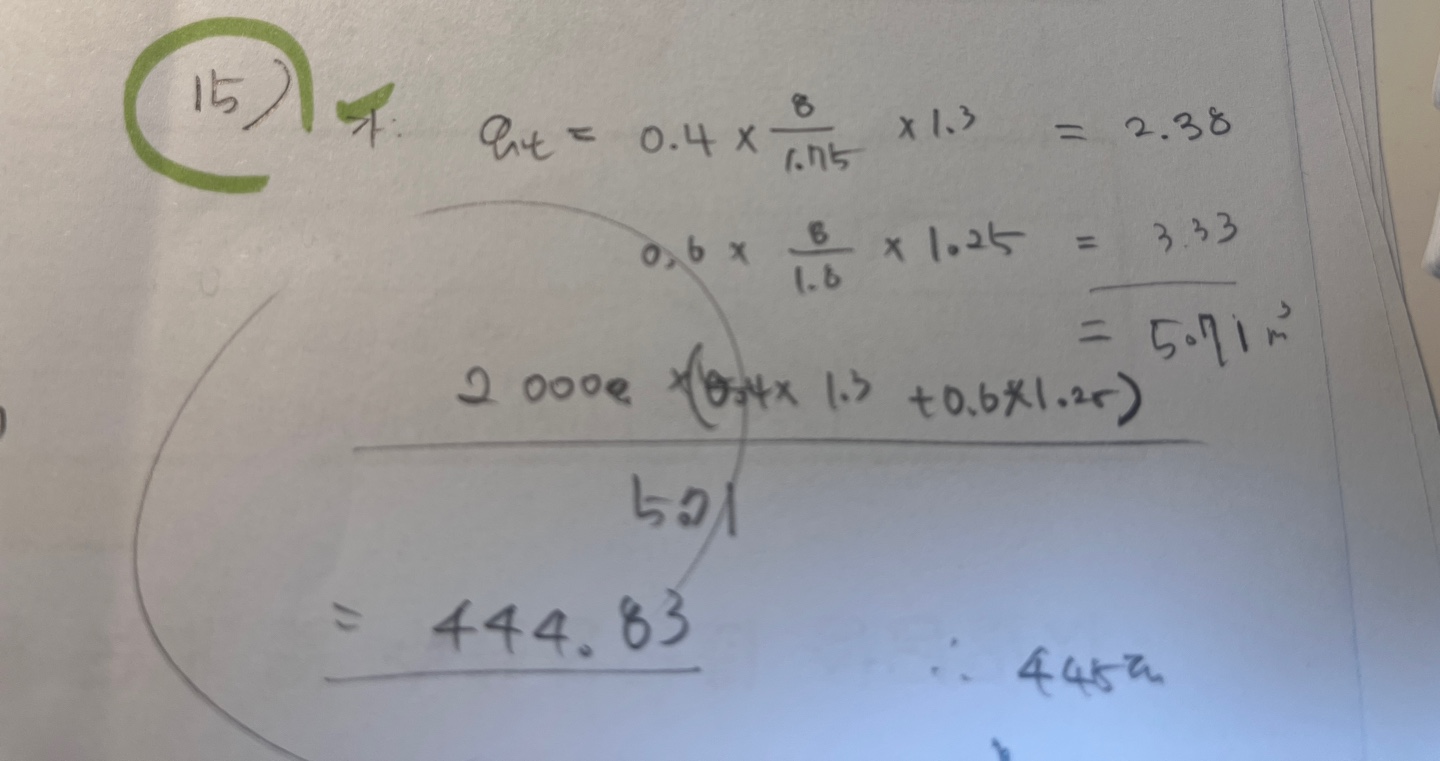 15) q_t = 0.4 × 8/1.75 × 1.3 = 2.38
0.6 × 8/1.8 × 1.25 = 3.33
= 5.71 m³
20000 × (0.4 × 1.3 + 0.6 × 1.25)
5.71
= 444.83
∴ 445대